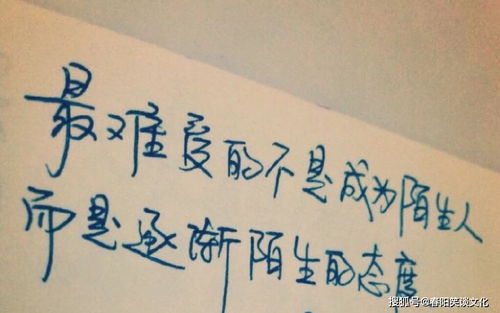 最难受的不是成为陌生人
而是逐渐陌生的态度
搜狐号@春阳笑谈文化